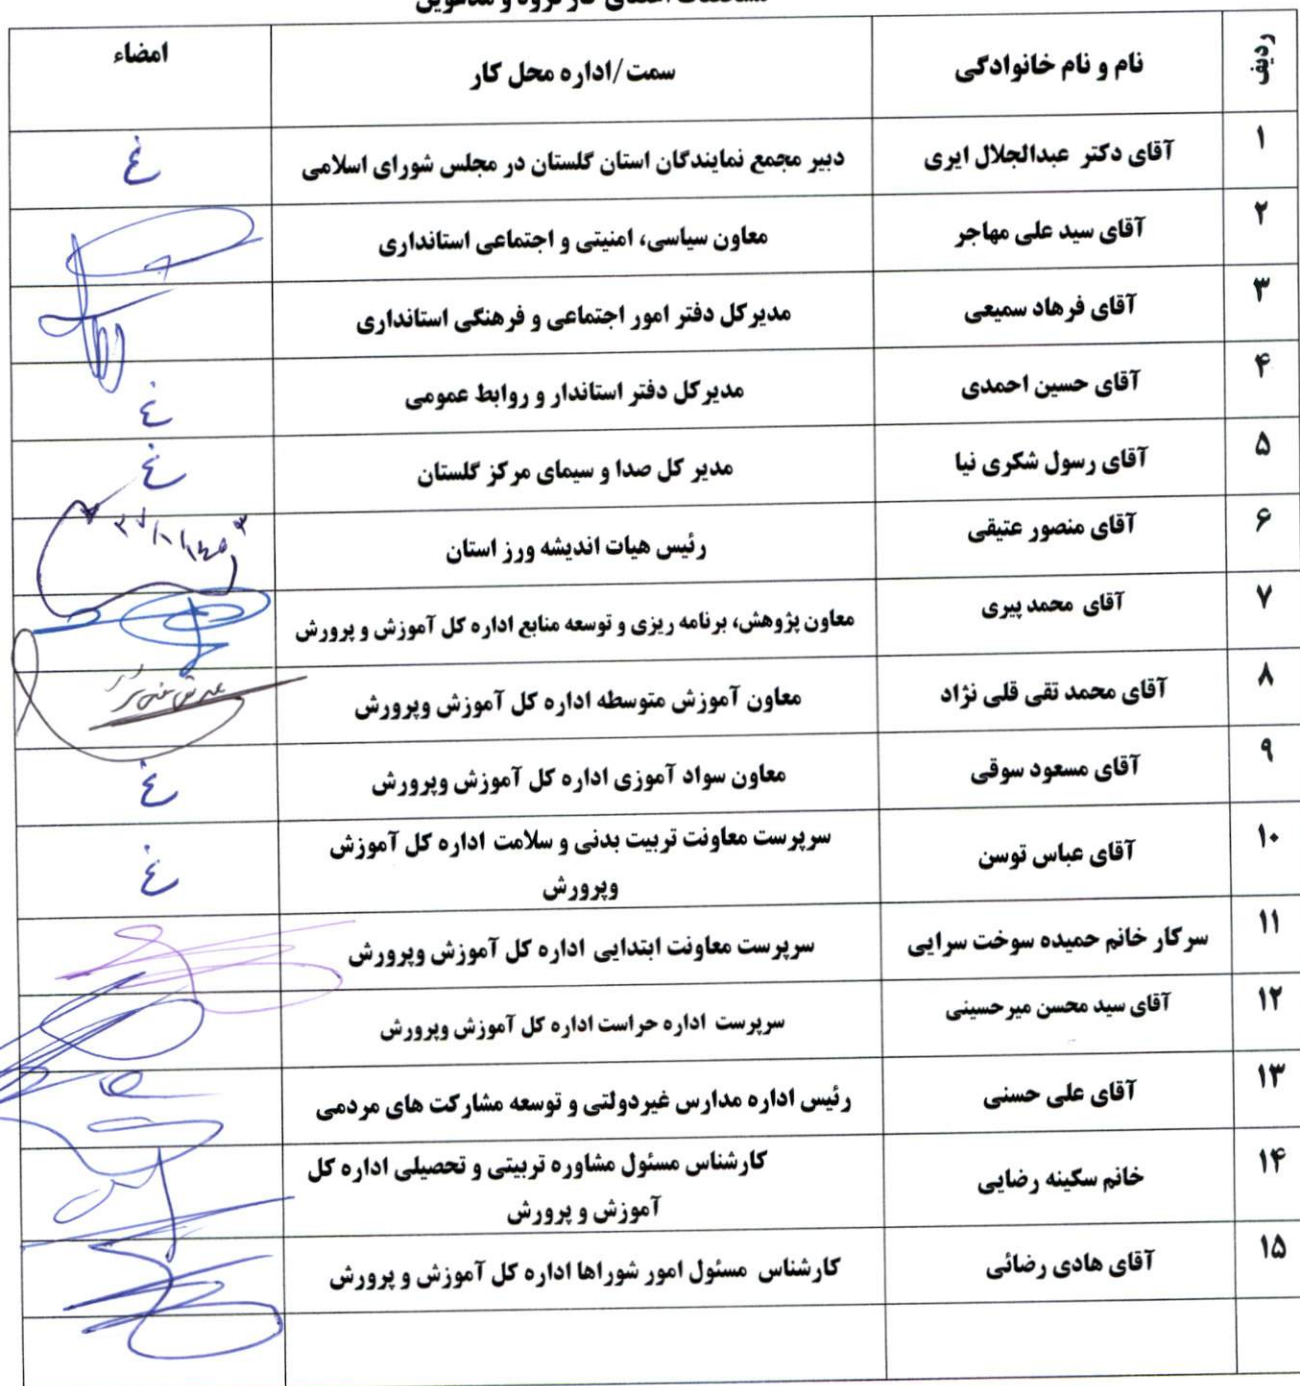 ردیف نام و نام خانوادگی سمت/اداره محل کار امضاء
۱ آقای دکتر عبدالجلال ایری دبیر مجمع نمایندگان استان گلستان در مجلس شورای اسلامی غ
۲ آقای سید علی مهاجر معاون سیاسی، امنیتی و اجتماعی استانداری
۳ آقای فرهاد سمیعی مدیرکل دفتر امور اجتماعی و فرهنگی استانداری
۴ آقای حسین احمدی مدیرکل دفتر استاندار و روابط عمومی غ
۵ آقای رسول شکری نیا مدیر کل صدا و سیمای مرکز گلستان غ
۶ آقای منصور عتیقی رئیس هیات اندیشه ورز استان
۷ آقای محمد پیری معاون پژوهش، برنامه ریزی و توسعه منابع اداره کل آموزش و پرورش
۸ آقای محمد تقی قلی نژاد معاون آموزش متوسطه اداره کل آموزش وپرورش
۹ آقای مسعود سوقی معاون سواد آموزی اداره کل آموزش وپرورش غ
۱۰ آقای عباس توسن سرپرست معاونت تربیت بدنی و سلامت اداره کل آموزش
وپرورش غ
۱۱ سرکار خانم حمیده سوخت سرایی سرپرست معاونت ابتدایی اداره کل آموزش وپرورش
۱۲ آقای سید محسن میرحسینی سرپرست اداره حراست اداره کل آموزش وپرورش
۱۳ آقای علی حسنی رئیس اداره مدارس غیردولتی و توسعه مشارکت های مردمی
۱۴ خانم سکینه رضایی کارشناس مسئول مشاوره تربیتی و تحصیلی اداره کل
آموزش و پرورش
۱۵ آقای هادی رضائی کارشناس مسئول امور شوراها اداره کل آموزش و پرورش